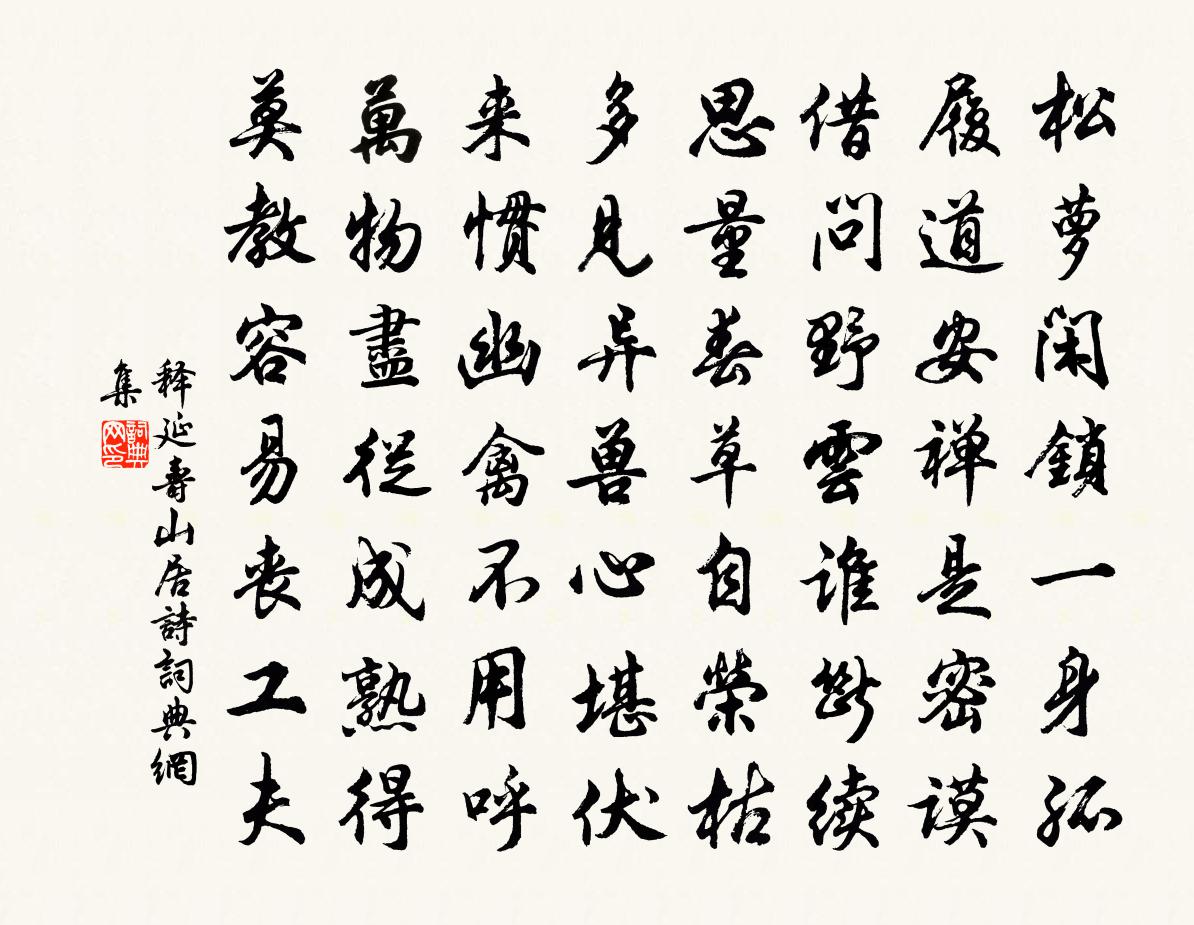 松萝闲鎖一身孤
履道安禅是密谟
借问野雲谁断续
思量春草自榮枯
多见异兽心堪伏
来慣幽禽不用呼
萬物盡從成熟得
莫教容易丧工夫
释延壽山居詩詞典網
集
詞典网印